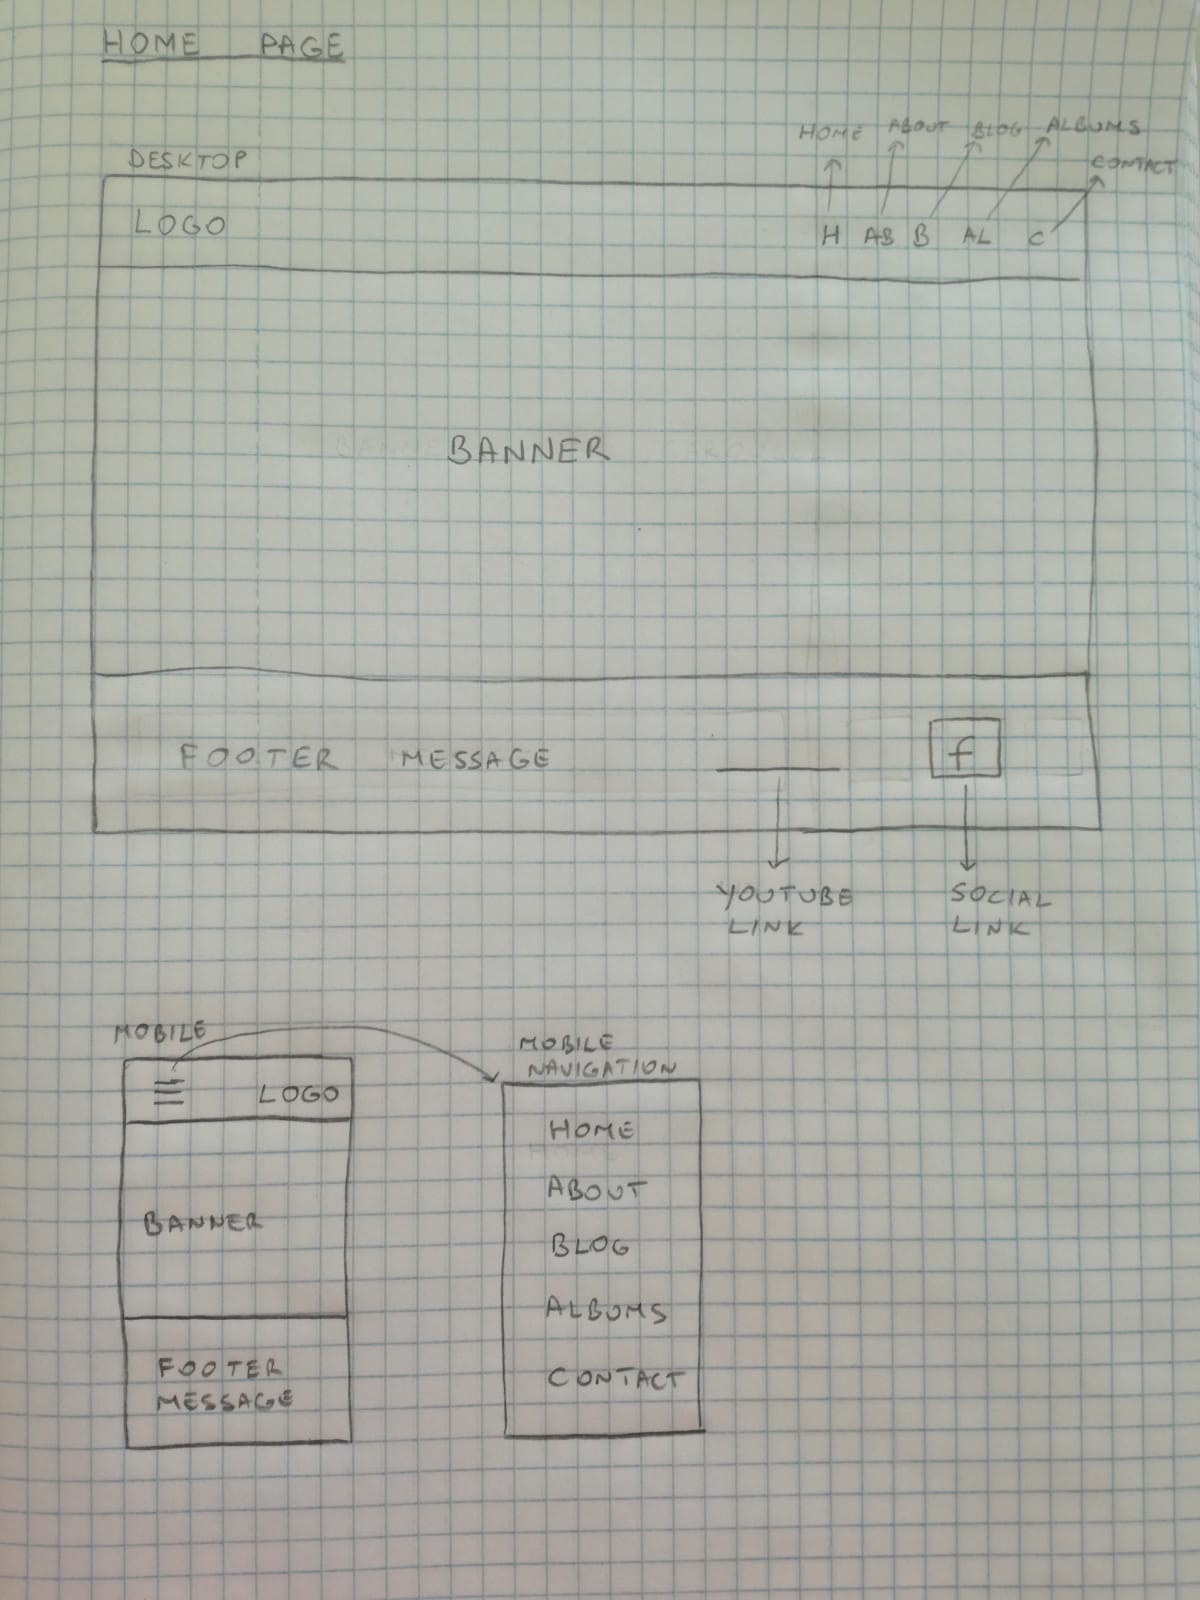 HOME PAGE
HOME ABOUT BLOG ALBUMS
DESKTOP
CONTACT
LOGO
H AB B AL C
BANNER
FOOTER MESSAGE
f
YOUTUBE
LINK
SOCIAL
LINK
MOBILE
LOGO
BANNER
FOOTER
MESSAGE
MOBILE
NAVIGATION
HOME
ABOUT
BLOG
ALBUMS
CONTACT